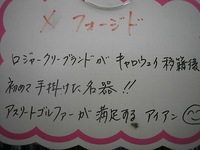 X フォージド
ロジャークリーブランドが キャロウェイ移籍後
初めて手掛けた名器!!
アスリートゴルファーが 満足する アイアン